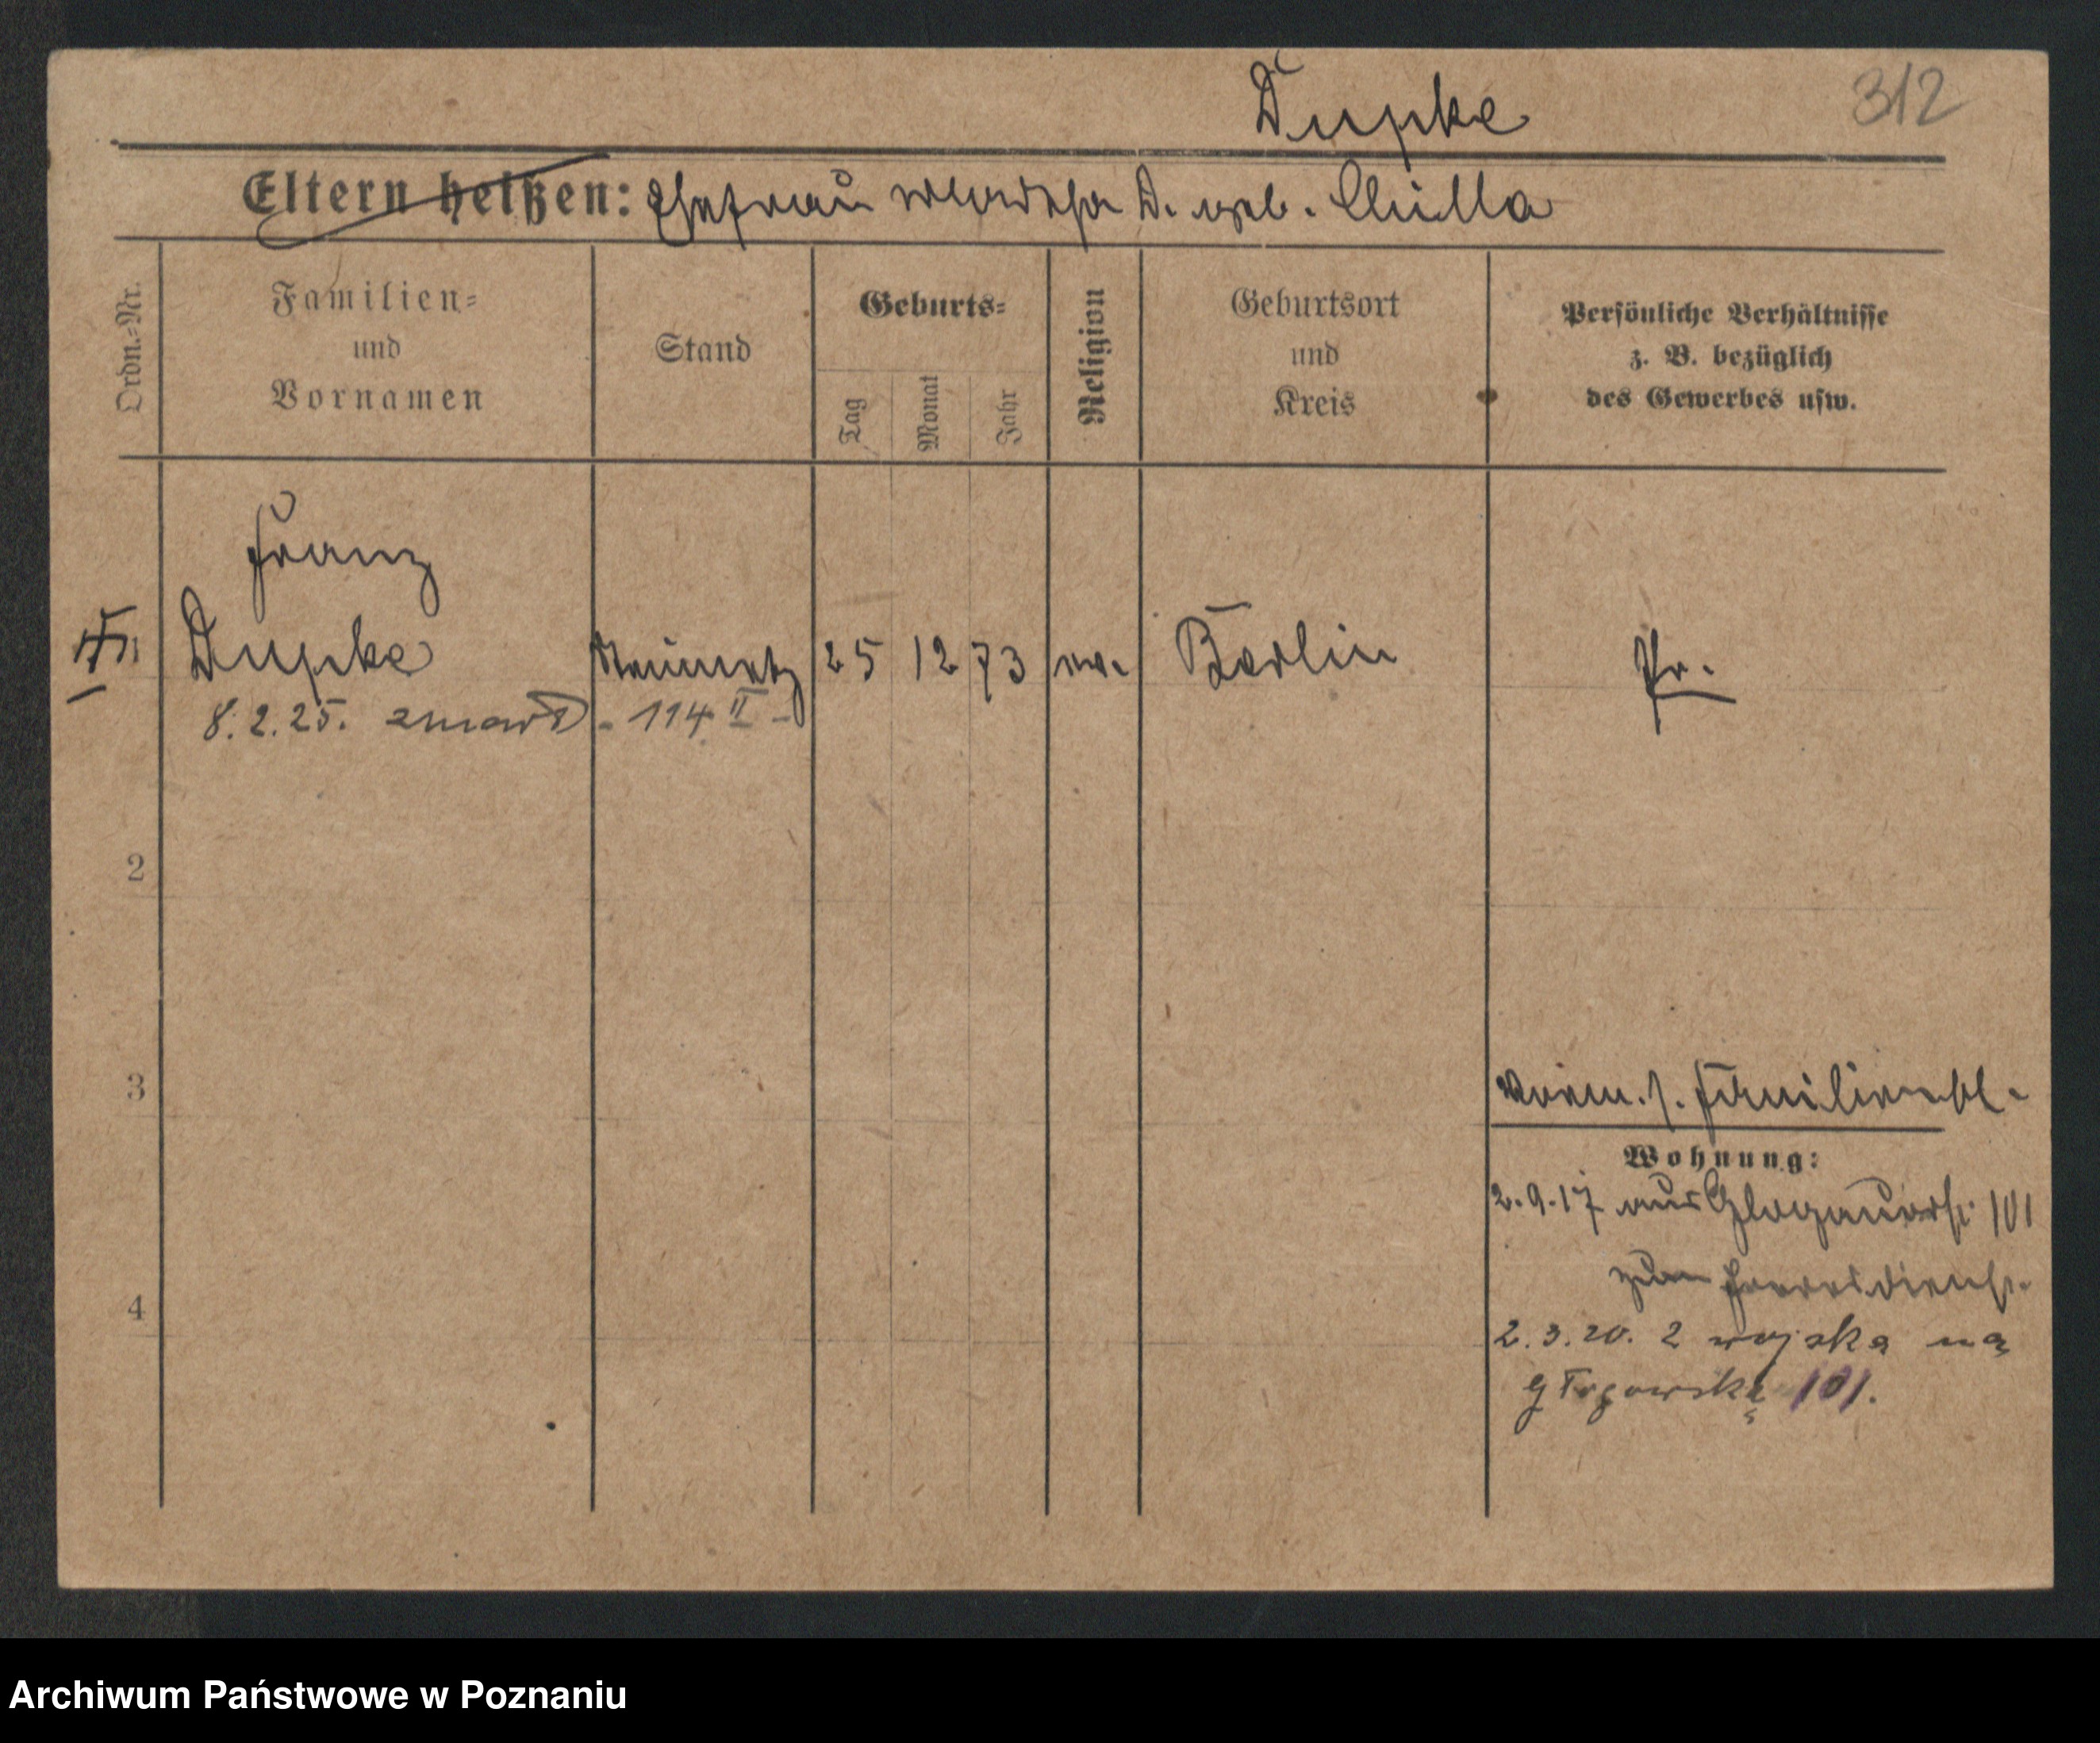 Dupke
312
Eltern heißen: Ehefrau Martha D. geb. Chilla
Ordn.-Nr.
Familien-
und
Vornamen
Stand
Geburts-
Tag
Monat
Jahr
Religion
Geburtsort
und
Kreis
Persönliche Verhältnisse
z. B. bezüglich
des Gewerbes usw.
Franz
Dupke 25 12 73 Berlin Pr.
8.2.25. zmarł - 114 II -
2
3
4
Familienbl.
Wohnung:
2.9.17 aus Glogauerstr 101
zum Heeresdienst.
2.3.20. z wojska na
Głogowską 101.
Archiwum Państwowe w Poznaniu